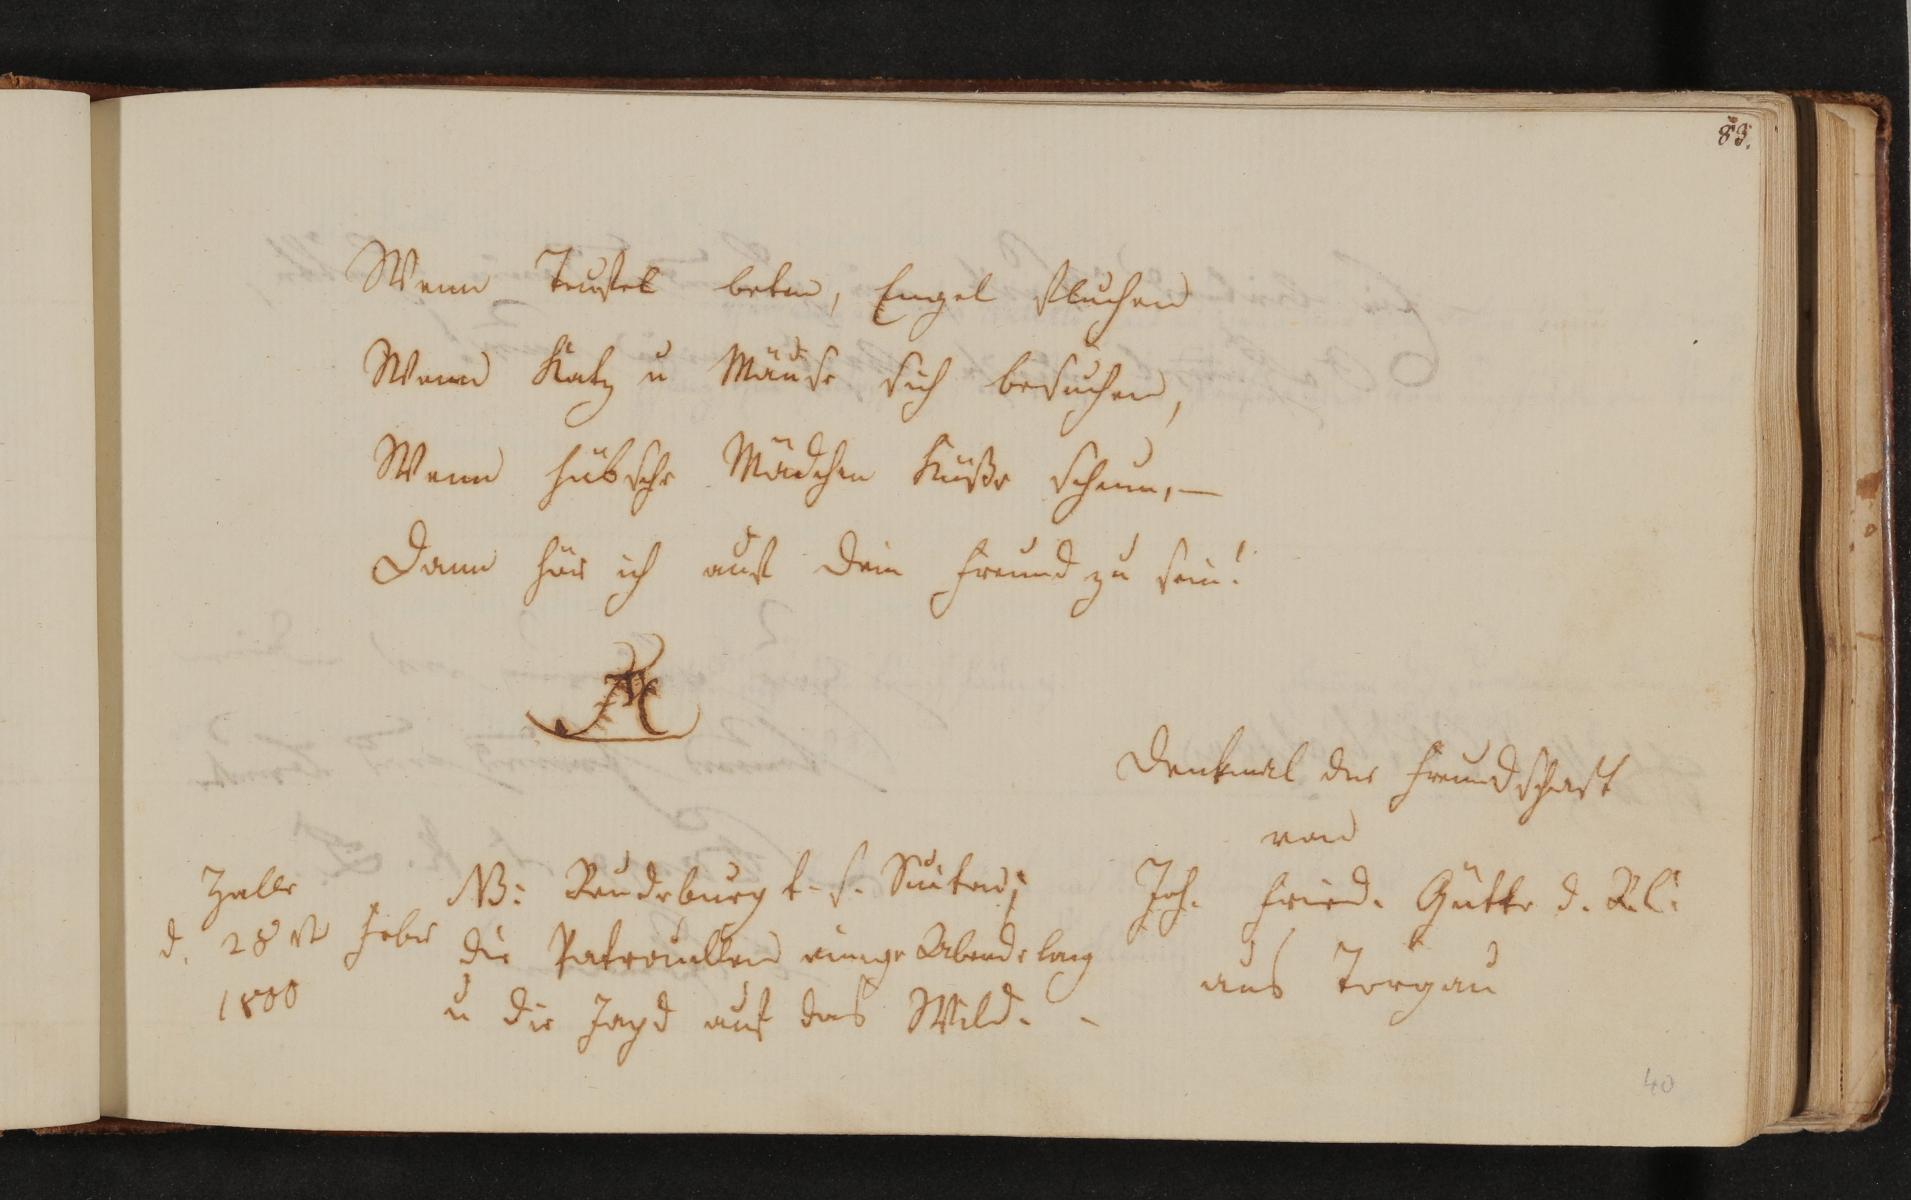 83.
Wenn Teufel beten, Engel fluchen
Wenn Katz u Mäuse sich besuchen,
Wenn hübsche Mädchen Küße scheun, —
Dann hör ich auf Dein Freund zu sein!
Denkmal der Freundschaft
von
Joh. Fried. Gütte d. R. C:
aus Torgau
Halle
d. 28 st Febr
1800
NB: Beudeburg t. s. Suiten;
die Patrouillen einige Abende lang
u die Jagd auf das Wild. -
40